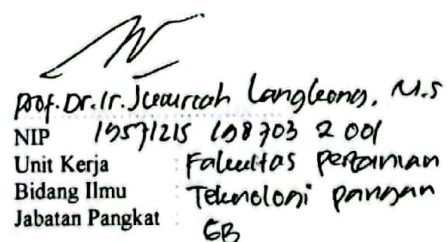 Prof. Dr. Ir. Jeaurcah Langkong, M.S
NIP 19571215 198703 2 001
Unit Kerja : Fakultas Pertanian
Bidang Ilmu : Teknologi pangan
Jabatan Pangkat : GB